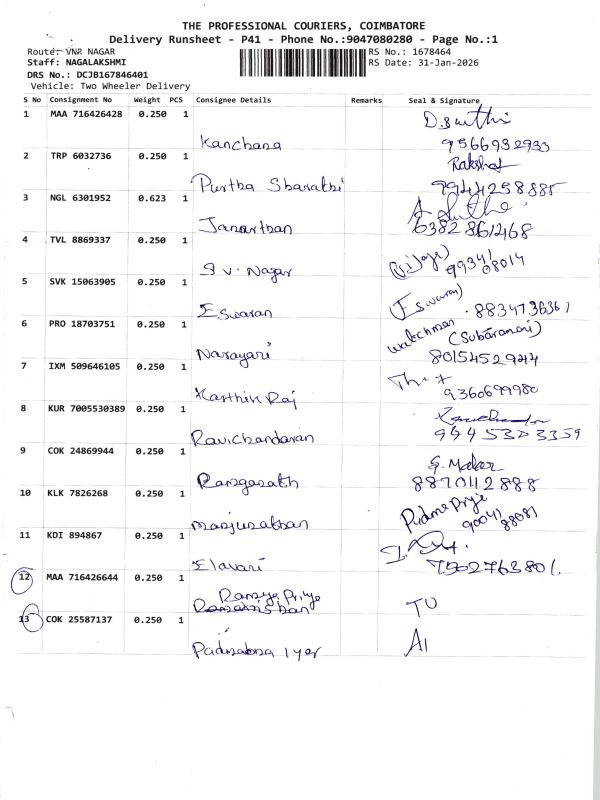 THE PROFESSIONAL COURIERS, COIMBATORE
Delivery Runsheet - P41 - Phone No.:9047080280 - Page No.:1
Route: VNR NAGAR
RS No.: 1678464
Staff: NAGALAKSHMI
RS Date: 31-Jan-2026
DRS No.: DCJB167846401
Vehicle: Two Wheeler Delivery
S No Consignment No Weight PCS Consignee Details Remarks Seal & Signature
1 MAA 716426428 0.250 1
Kanchana 9566932933
2 TRP 6032736 0.250 1 Rakshat
Purtha Sbarathi 9944258885
3 NGL 6301952 0.623 1
Janarthan 6382861468
4 TVL 8869337 0.250 1
S v. Nagar 99341 08014
5 SVK 15063905 0.250 1 (Eswaran)
Eswaran
6 PRO 18703751 0.250 1 watchman (Subaramani)
Narayani 8015452944
7 IXM 509646105 0.250 1
Karthik Raj 9360699980
8 KUR 7005530389 0.250 1
Ravichandaran 9445323359
9 COK 24869944 0.250 1
8870112888
10 KLK 7826268 0.250 1 Padma Priya
90041 88081
11 KDI 894867 0.250 1
Elavari 7502763801.
12 MAA 716426644 0.250 1
Ramya Priya TU
13 COK 25587137 0.250 1
Padmabna Iyer AI